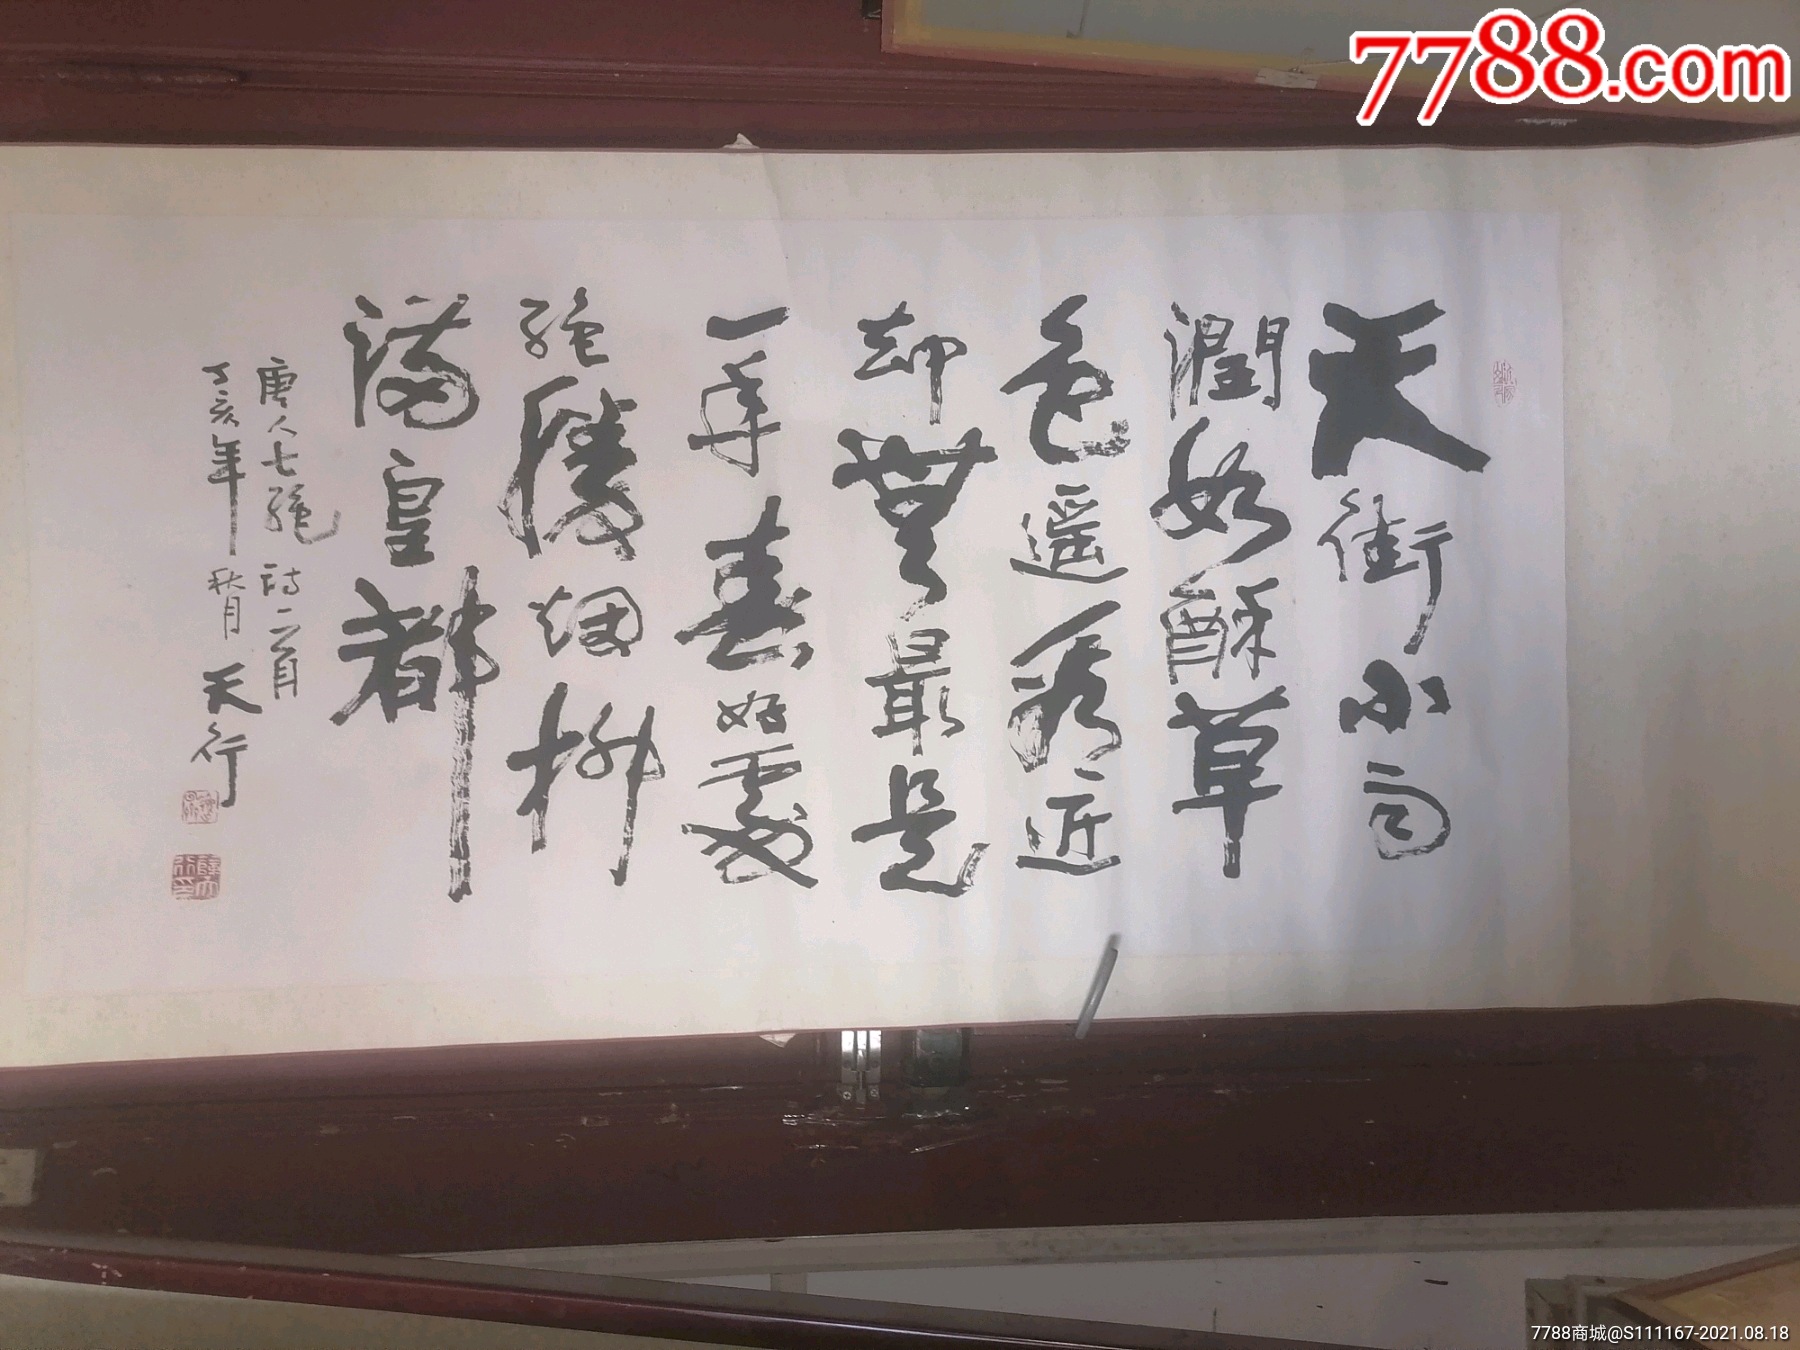 7788.com
天街小雨
潤如酥草
色遥看近
却無最是
一年春好處
絕勝烟柳
滿皇都
唐人七絕詩一首
丁亥年秋月 天行
薛天行印
7788商城@S111167-2021.08.18